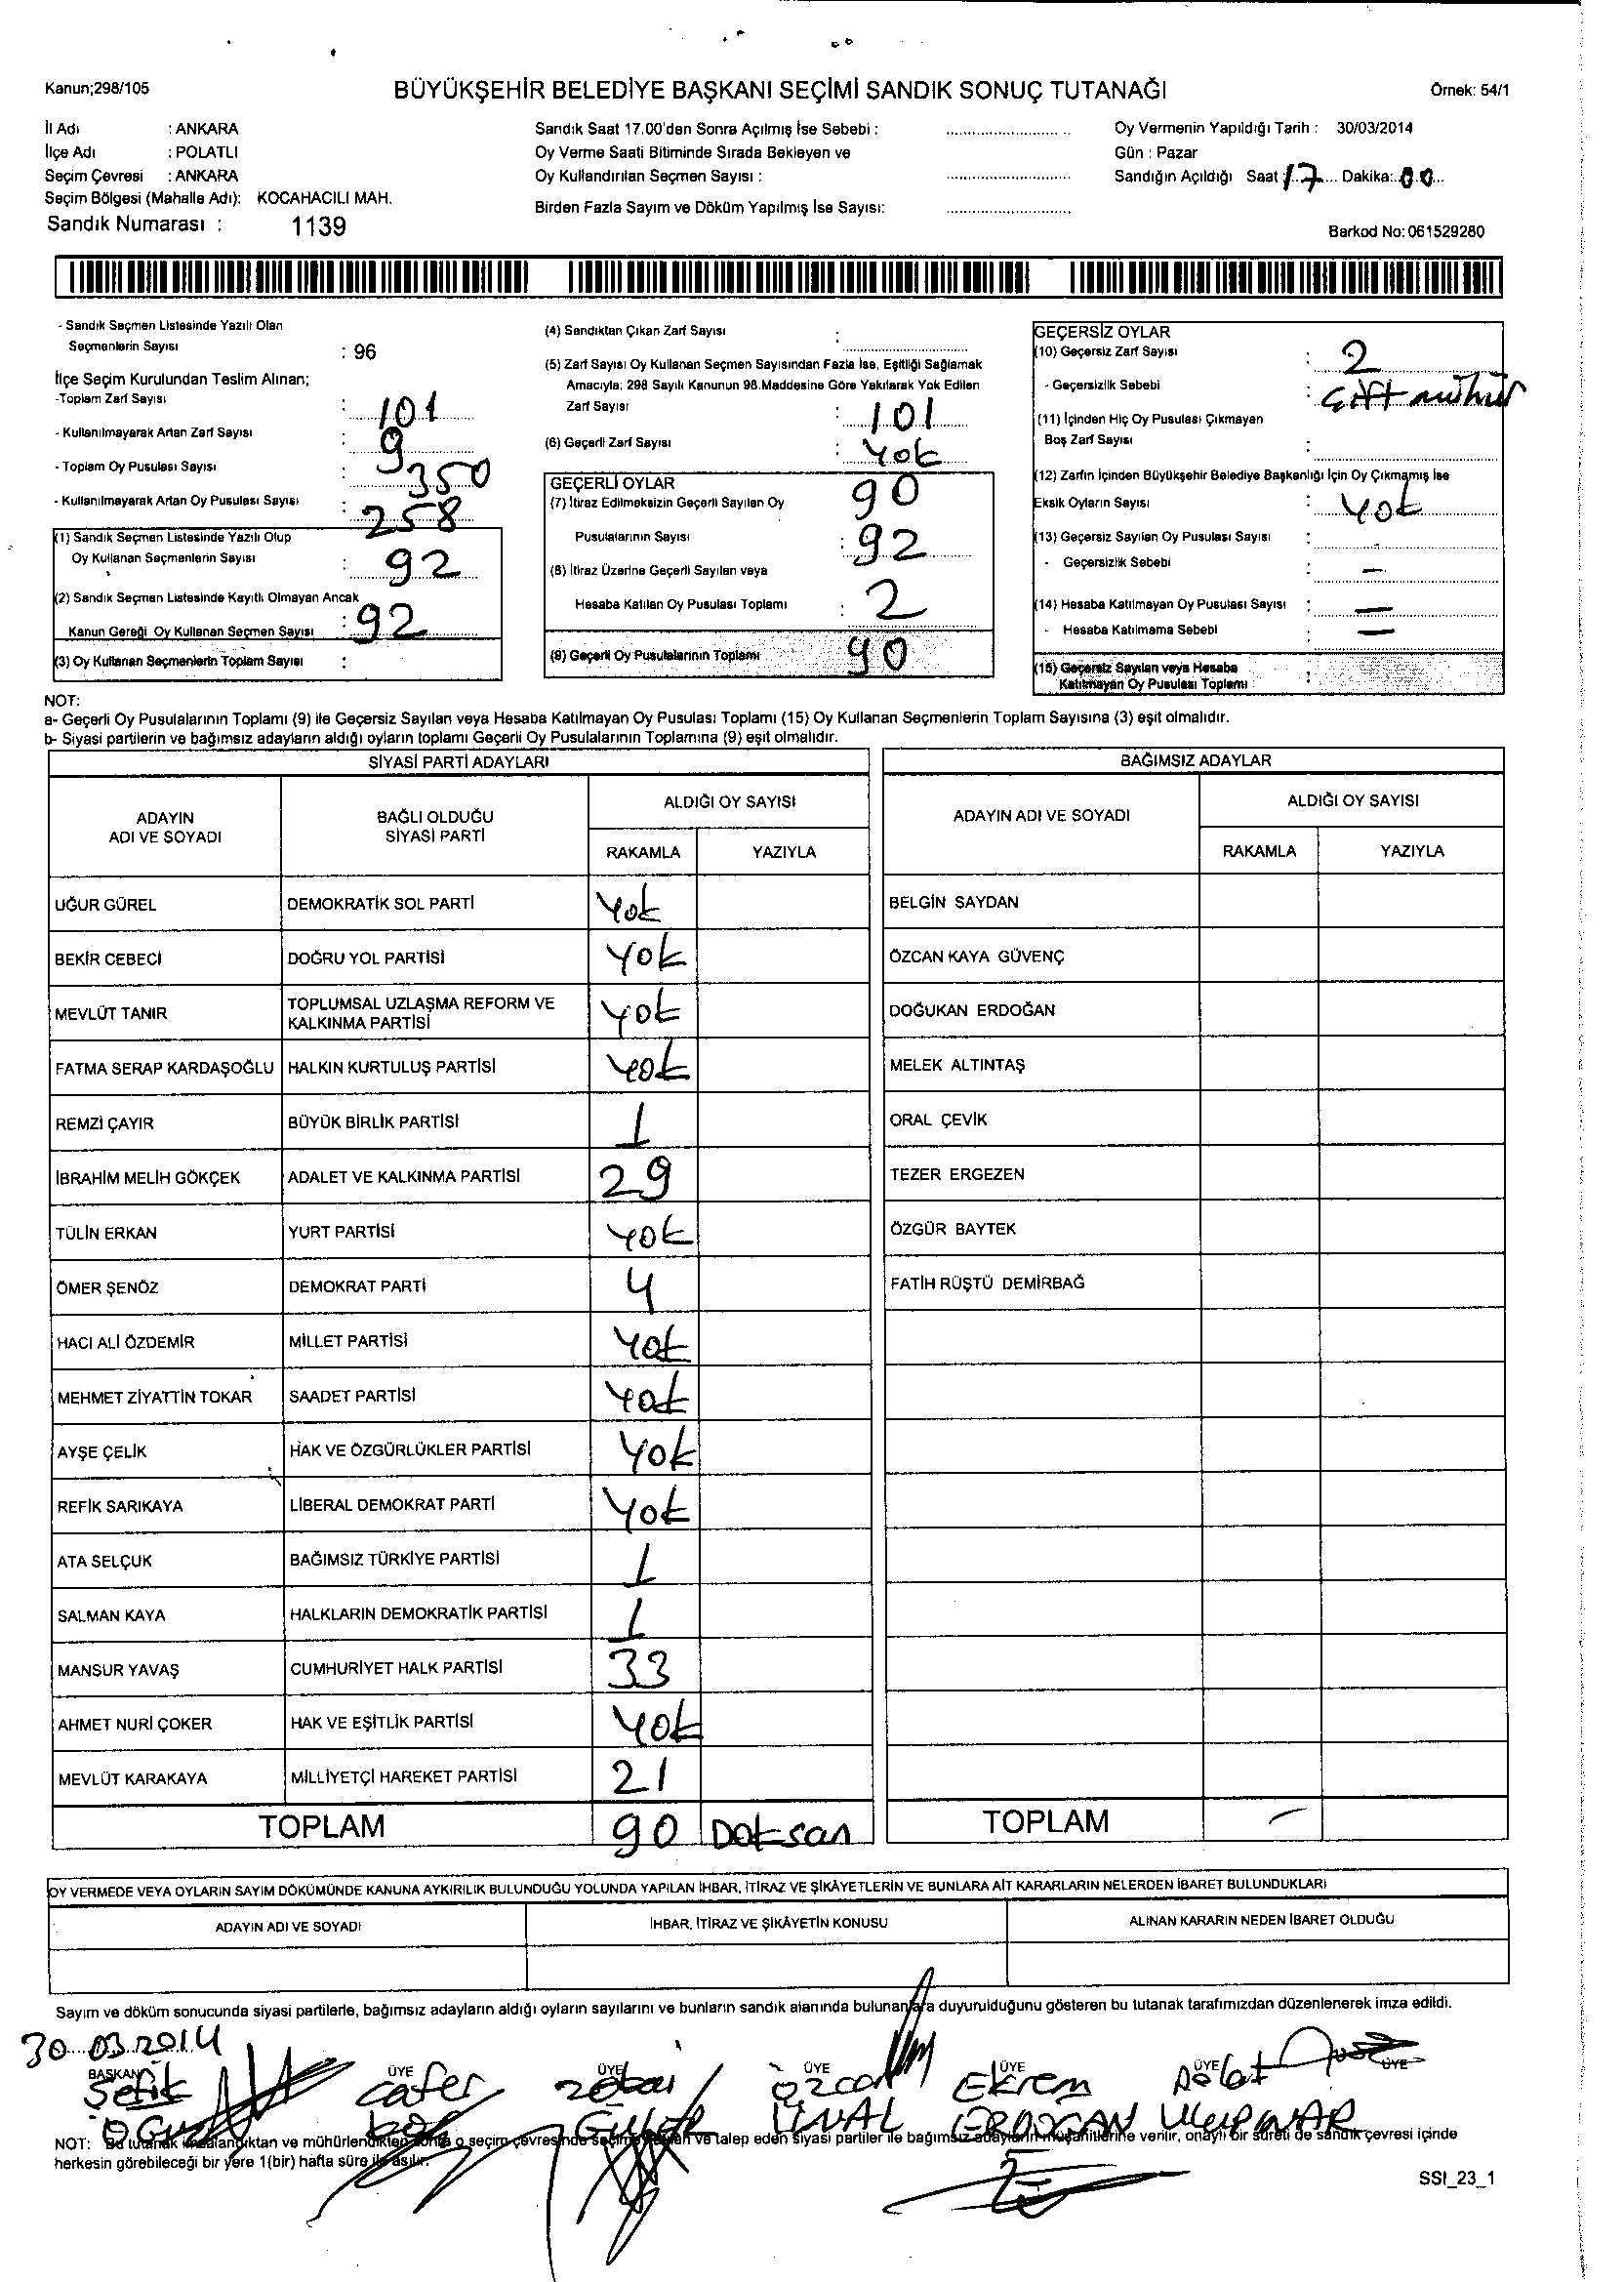 Kanun;298/105
BÜYÜKŞEHİR BELEDİYE BAŞKANI SEÇİMİ SANDIK SONUÇ TUTANAĞI
Örnek: 54/1
İl Adı : ANKARA
İlçe Adı : POLATLI
Seçim Çevresi : ANKARA
Seçim Bölgesi (Mahalle Adı): KOCAHACILI MAH.
Sandık Numarası : 1139
Sandık Saat 17.00'den Sonra Açılmış İse Sebebi :
Oy Verme Saati Bitiminde Sırada Bekleyen ve
Oy Kullandırılan Seçmen Sayısı :
Birden Fazla Sayım ve Döküm Yapılmış İse Sayısı:
Oy Vermenin Yapıldığı Tarih : 30/03/2014
Gün : Pazar
Sandığın Açıldığı Saat : 17 Dakika: 00
Barkod No: 061529280
- Sandık Seçmen Listesinde Yazılı Olan
Seçmenlerin Sayısı : 96
İlçe Seçim Kurulundan Teslim Alınan;
-Toplam Zarf Sayısı : 101
- Kullanılmayarak Artan Zarf Sayısı : 9
- Toplam Oy Pusulası Sayısı : 350
- Kullanılmayarak Artan Oy Pusulası Sayısı : 258
(1) Sandık Seçmen Listesinde Yazılı Olup
Oy Kullanan Seçmenlerin Sayısı : 92
(2) Sandık Seçmen Listesinde Kayıtlı Olmayan Ancak
Kanun Gereği Oy Kullanan Seçmen Sayısı : 92
(3) Oy Kullanan Seçmenlerin Toplam Sayısı :
(4) Sandıktan Çıkan Zarf Sayısı :
(5) Zarf Sayısı Oy Kullanan Seçmen Sayısından Fazla İse, Eşitliği Sağlamak
Amacıyla; 298 Sayılı Kanunun 98.Maddesine Göre Yakılarak Yok Edilen
Zarf Sayısı : 101
(6) Geçerli Zarf Sayısı : Yok
GEÇERLİ OYLAR
(7) İtiraz Edilmeksizin Geçerli Sayılan Oy 90
Pusulalarının Sayısı : 92
(8) İtiraz Üzerine Geçerli Sayılan veya
Hesaba Katılan Oy Pusulası Toplamı : 2
(9) Geçerli Oy Pusulalarının Toplamı 90
GEÇERSİZ OYLAR
(10) Geçersiz Zarf Sayısı : 2
- Geçersizlik Sebebi : Çift mühür
(11) İçinden Hiç Oy Pusulası Çıkmayan
Boş Zarf Sayısı :
(12) Zarfın İçinden Büyükşehir Belediye Başkanlığı İçin Oy Çıkmamış İse
Eksik Oyların Sayısı : Yok
(13) Geçersiz Sayılan Oy Pusulası Sayısı : -
- Geçersizlik Sebebi : -
(14) Hesaba Katılmayan Oy Pusulası Sayısı : -
- Hesaba Katılmama Sebebi : -
(15) Geçersiz Sayılan veya Hesaba
Katılmayan Oy Pusulası Toplamı :
NOT:
a- Geçerli Oy Pusulalarının Toplamı (9) ile Geçersiz Sayılan veya Hesaba Katılmayan Oy Pusulası Toplamı (15) Oy Kullanan Seçmenlerin Toplam Sayısına (3) eşit olmalıdır.
b- Siyasi partilerin ve bağımsız adayların aldığı oyların toplamı Geçerli Oy Pusulalarının Toplamına (9) eşit olmalıdır.
SİYASİ PARTİ ADAYLARI
ADAYIN ADI VE SOYADI
BAĞLI OLDUĞU SİYASİ PARTİ
ALDIĞI OY SAYISI
RAKAMLA YAZIYLA
UĞUR GÜREL DEMOKRATİK SOL PARTİ Yok
BEKİR CEBECİ DOĞRU YOL PARTİSİ Yok
MEVLÜT TANIR TOPLUMSAL UZLAŞMA REFORM VE KALKINMA PARTİSİ Yok
FATMA SERAP KARDAŞOĞLU HALKIN KURTULUŞ PARTİSİ Yok
REMZİ ÇAYIR BÜYÜK BİRLİK PARTİSİ 1
İBRAHİM MELİH GÖKÇEK ADALET VE KALKINMA PARTİSİ 29
TÜLİN ERKAN YURT PARTİSİ Yok
ÖMER ŞENÖZ DEMOKRAT PARTİ 4
HACI ALİ ÖZDEMİR MİLLET PARTİSİ Yok
MEHMET ZİYATTİN TOKAR SAADET PARTİSİ Yok
AYŞE ÇELİK HAK VE ÖZGÜRLÜKLER PARTİSİ Yok
REFİK SARIKAYA LİBERAL DEMOKRAT PARTİ Yok
ATA SELÇUK BAĞIMSIZ TÜRKİYE PARTİSİ 1
SALMAN KAYA HALKLARIN DEMOKRATİK PARTİSİ 1
MANSUR YAVAŞ CUMHURİYET HALK PARTİSİ 33
AHMET NURİ ÇOKER HAK VE EŞİTLİK PARTİSİ Yok
MEVLÜT KARAKAYA MİLLİYETÇİ HAREKET PARTİSİ 21
TOPLAM 90 Doksan
BAĞIMSIZ ADAYLAR
ADAYIN ADI VE SOYADI
ALDIĞI OY SAYISI
RAKAMLA YAZIYLA
BELGİN SAYDAN
ÖZCAN KAYA GÜVENÇ
DOĞUKAN ERDOĞAN
MELEK ALTINTAŞ
ORAL ÇEVİK
TEZER ERGEZEN
ÖZGÜR BAYTEK
FATİH RÜŞTÜ DEMİRBAĞ
TOPLAM -
OY VERMEDE VEYA OYLARIN SAYIM DÖKÜMÜNDE KANUNA AYKIRILIK BULUNDUĞU YOLUNDA YAPILAN İHBAR, İTİRAZ VE ŞİKÂYETLERİN VE BUNLARA AİT KARARLARIN NELERDEN İBARET BULUNDUKLARI
ADAYIN ADI VE SOYADI
İHBAR, İTİRAZ VE ŞİKÂYETİN KONUSU
ALINAN KARARIN NEDEN İBARET OLDUĞU
Sayım ve döküm sonucunda siyasi partilerle, bağımsız adayların aldığı oyların sayılarını ve bunların sandık alanında bulunanlara duyurulduğunu gösteren bu tutanak tarafımızdan düzenlenerek imza edildi.
30.03.2014
BAŞKAN ÜYE ÜYE ÜYE ÜYE ÜYE ÜYE
Şefik Cafer Özcan Ekrem
ÜNAL ERDOĞAN ULUPINAR
NOT: Bu tutanak imzalandıktan ve mühürlendikten sonra o seçim çevresinde seçime katılan ve talep eden siyasi partiler ile bağımsız adayların müşahitlerine verilir, onaylı bir sureti de sandık çevresi içinde
herkesin görebileceği bir yere 1(bir) hafta süre ile asılır.
SSI_23_1